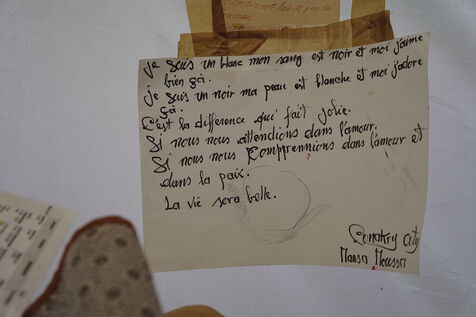 je suis un blanc mon sang est noir et moi j'aime
bien çà.
je suis un noir ma peau est blanche et moi j'adore
çà.
C'est la différence qui fait jolie.
Si nous nous attendions dans l'amour.
Si nous nous comprennions dans l'amour et
dans la paix.
La vié sera belle.
Conakry City
Mansa Moussa